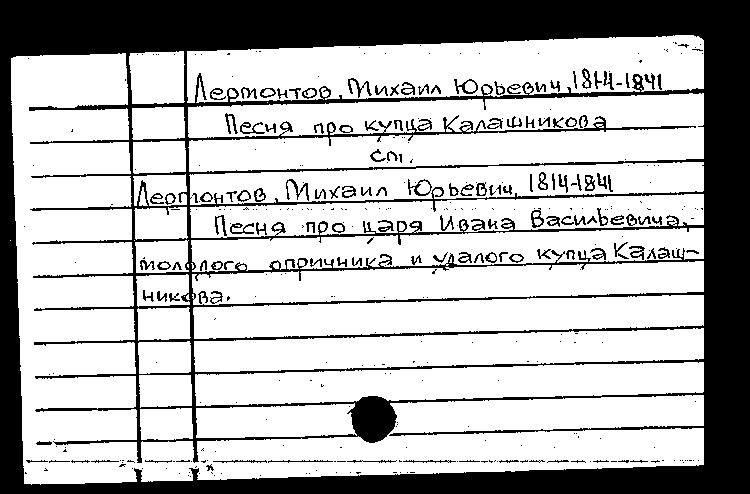 Лермонтов, Михаил Юрьевич, 1814-1841
Песня про купца Калашникова
см.
Лермонтов, Михаил Юрьевич, 1814-1841
Песня про царя Ивана Васильевича,
молодого опричника и удалого купца Калаш-
никова.